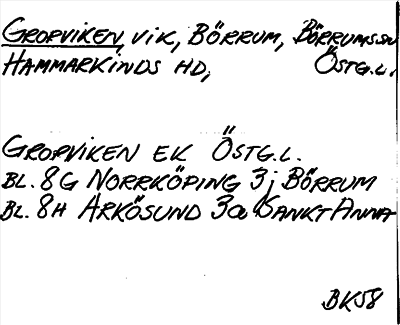 GROPVIKEN, VIK, BÖRRUM, BÖRRUMSSN
HAMMARKINDS HD, ÖSTG.L.
GROPVIKEN EK ÖSTG.L.
BL. 8G NORRKÖPING 3j BÖRRUM
BL. 8H ARKÖSUND 3a SANKT ANNA
BK58